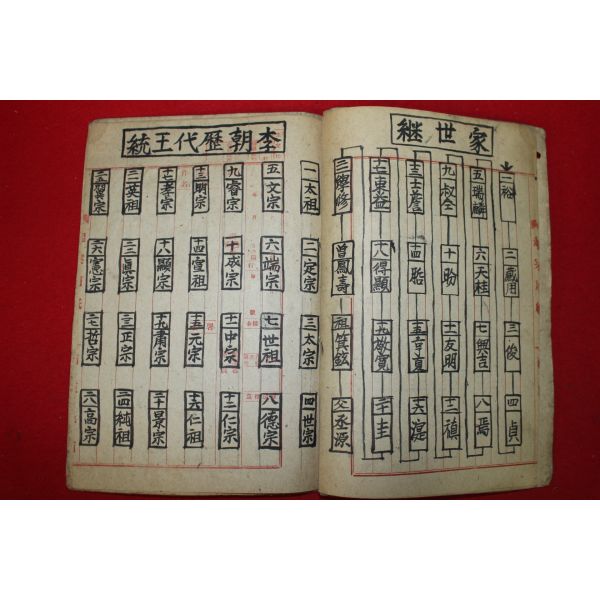 家世継
一裕 二蔵用 三俊 四貞
五瑞麟 六天桂 七興吉 八焉
九叔全 十昐 十一友明 十二禛
十三士 十四貽 十五 十六湜
十七東益 十八得顯 十九敬寛 二十圭
二一學修 曾鳳壽 祖箕鉉 父永源
李朝歴代王統
一太祖 二定宗 三太宗 四世宗
五文宗 六端宗 七世祖 八德宗
九睿宗 十成宗 十一中宗 十二仁宗
十三明宗 十四宣祖 十五元宗 十六仁祖
十七孝宗 十八顯宗 十九肅宗 二十景宗
二一英祖 二二眞宗 二三正宗 二四純祖
二五翼宗 二六憲宗 二七哲宗 二八高宗